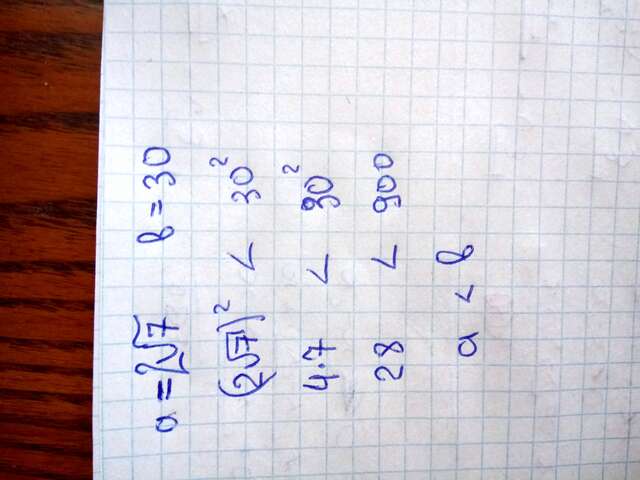 a = 2√7 в = 30
(2√7)² < 30²
4·7 < 30²
28 < 900
a < в